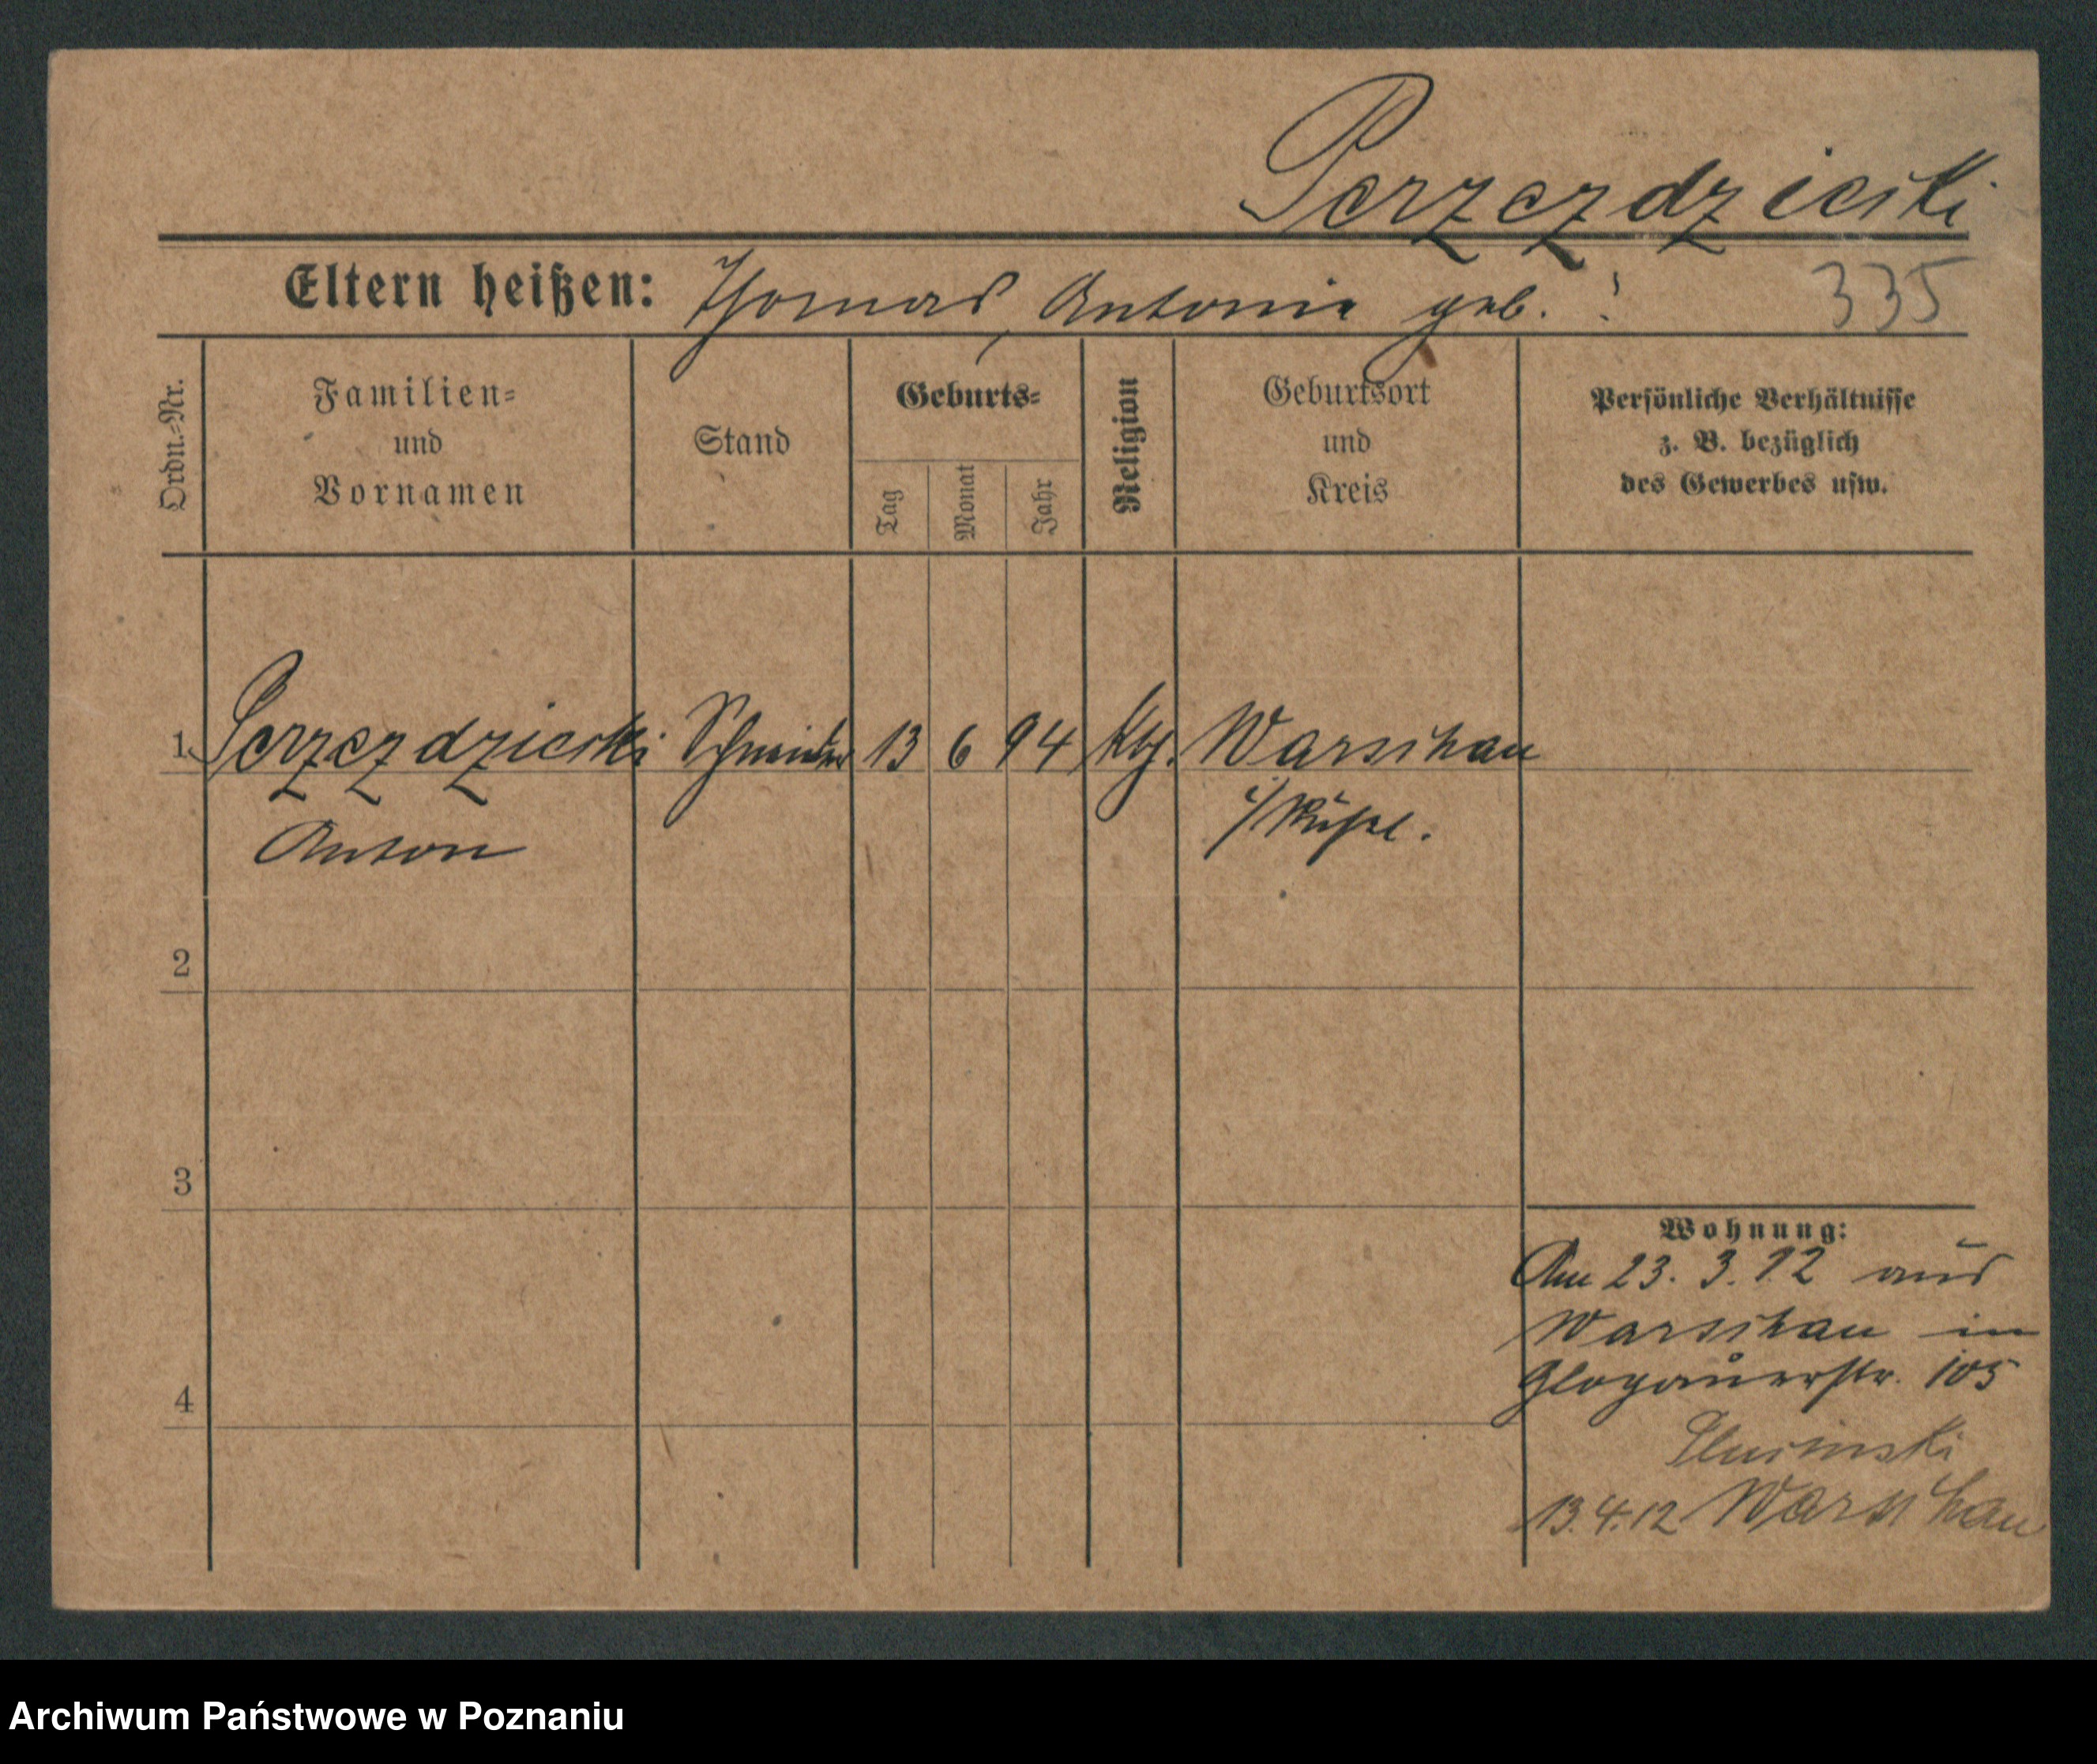 Perzezdziecki
Eltern heißen: Thomas, Antonie geb. ?
335
Ordn.-Nr.
Familien-
und
Vornamen
Stand
Geburts-
Tag
Monat
Jahr
Religion
Geburtsort
und
Kreis
Persönliche Verhältnisse
z. B. bezüglich
des Gewerbes usw.
1 Perzezdziecki Schneider 13 6 94 kth. Warschau
Anton i/Rußl.
2
3
4
Wohnung:
Am 23. 3. 12 aus
Warschau in
Glogauerstr. 105
13.4.12 Warschau
Archiwum Państwowe w Poznaniu